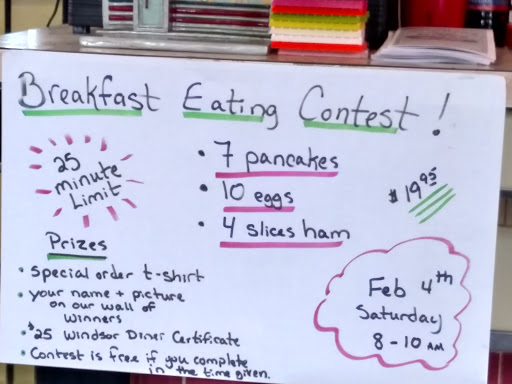 Breakfast Eating Contest!
25
minute
Limit
• 7 pancakes
• 10 eggs
• 4 slices ham
$19.95
Prizes
• special order t-shirt
• your name + picture
on our wall of
winners
• $25 Windsor Diner Certificate
• Contest is free if you complete
in the time given.
Feb 4th
Saturday
8-10 AM